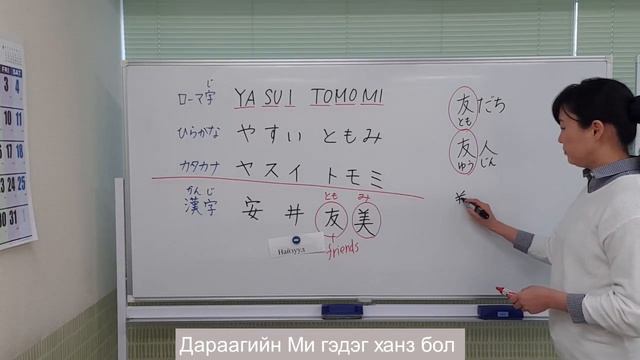 ローマ字 じ YA SU I TOMOMI
ひらがな やすい ともみ
カタカナ ヤスイ トモミ
かんじ とも み
漢字 安 井 友 美
friends
友だち
とも
友人
ゆう じん
FRI SAT
3 4
10 11
17 18
24 25
30 31
Дараагийн Ми гэдэг ханз бол